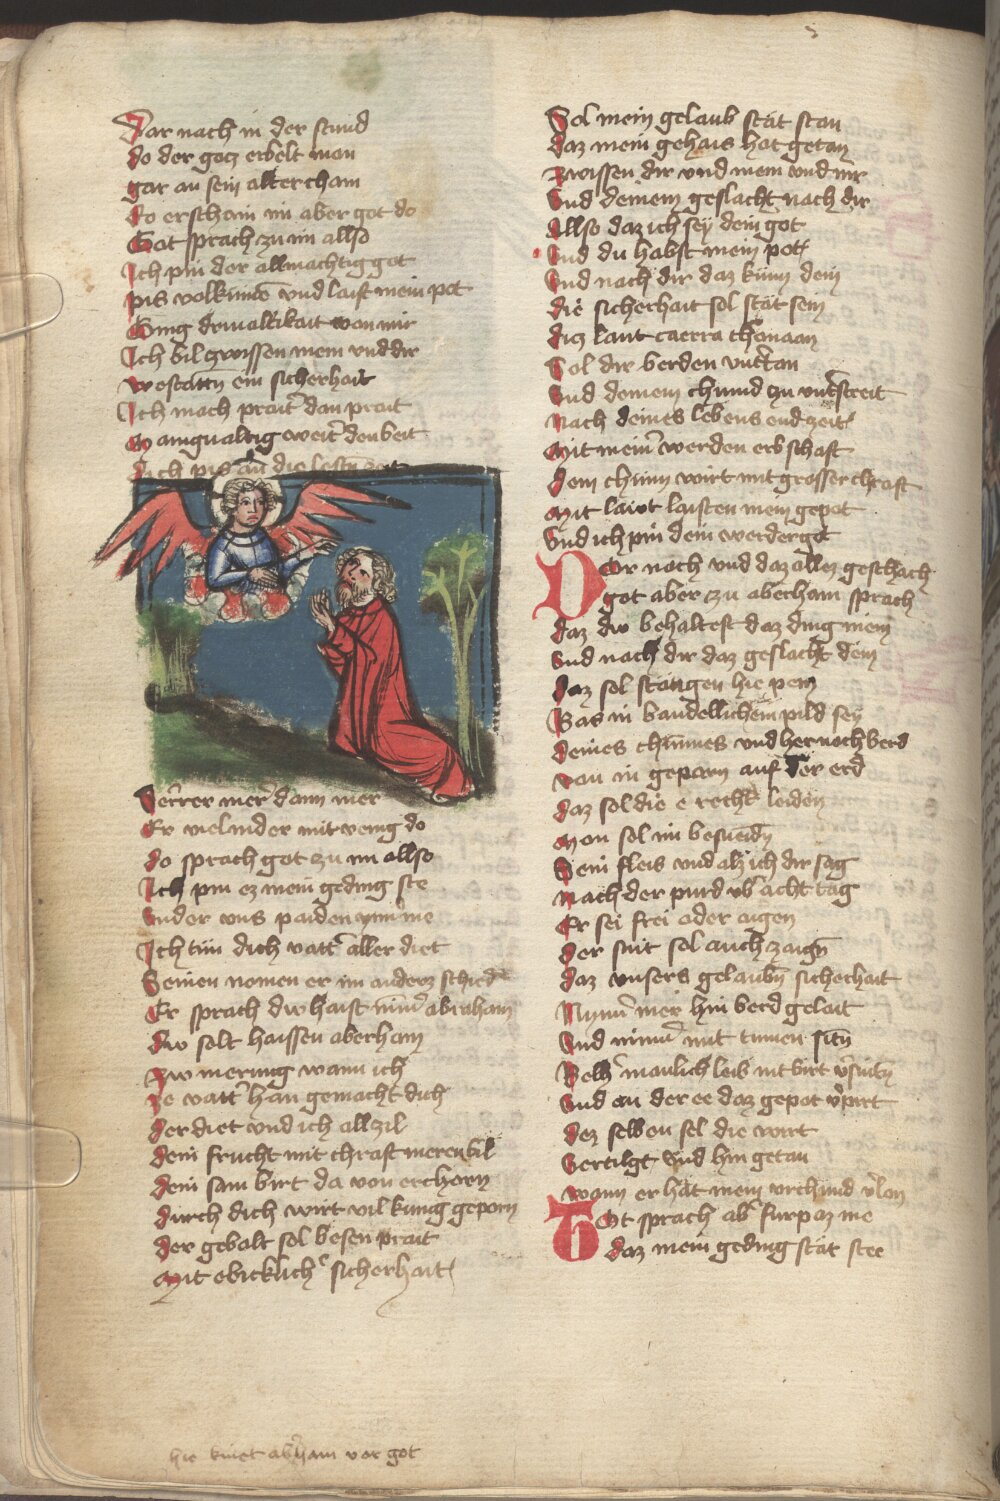 Dar nach in der stund
do der gocz erbelt man
gar an sein alter cham
do erschain im aber got do
Got sprach zu im allso
Ich pin der allmachtig got
pis volkumen vnd laist mein pot
Ging drivaltikait von mir
Ich bil zwissen mein vnd dir
vestatten ein sicherhait
Ich mach prait dan prait
Mainguale weit den beit
dich pis an die lestn zeit
verrer mer dann mer
Er viel nider mit venig do
do sprach got zu im allso
Ich pin ez mein geding ste
vnder vns paiden me
Ich tun dich vatter aller diet
Seinen nomen er im anderz schied
Er sprach dw haist nimer abraham
dw solt haissen aberham
zw merung wann ich
ze vatter han gemacht dich
der diet vnd ich all zil
dein frucht mit chraft meren bil
dein sam birt da von erchorn
durch dich wirt vil kunig geporn
der gebalt sol besen prait
Mit ebicklicher sicherhait
Sol mein gelaub stat stan
daz mein gehais hat getan
zwissen dir vnd mein vnd mir
vnd deinem geslacht nach dir
Allso daz ich sey dein got
vnd du habst mein pot
vnd nach dir daz kunn dein
die sicherhait sol stat sein
dicz lant caerra chanaan
Sol dir berden vntertan
vnd deinem chunn zu
Nach deines lebens end zeit
Mit meinen werden erbschaft
dein chunn wirt mit grosser chraft
Mit laist laisten mein gepot
vnd ich pin dein werder got
Dar nach vnd daz allez geschach
got aber zu aberham sprach
daz dw behaltest daz ding mein
vnd nach dir daz geslacht dein
daz sol statigen hie pein
Was in bandellichem pild sey
deines chunnes vnd her nach berd
von in geporn auf der erd
daz sol die e recht leiden
Man sol im besneiden
Sein fleis vnd alz ich dir sag
Nach der purd vber acht tag
Er sei frei oder aigen
der snit sol auch zaign
daz vnsers gelaubn sicherhait
Nymer mer hin berd gelait
vnd nimer mit tumen sitn
Belh manlich leib nit birt versnitn
vnd an der ee daz gepot
dez selben sel die wirt
vertilgt vnd hin getan
wann er hat mein vrchund verlan
Got sprach aber furpaz me
daz mein geding stat stee
hie kniet abraham vor got